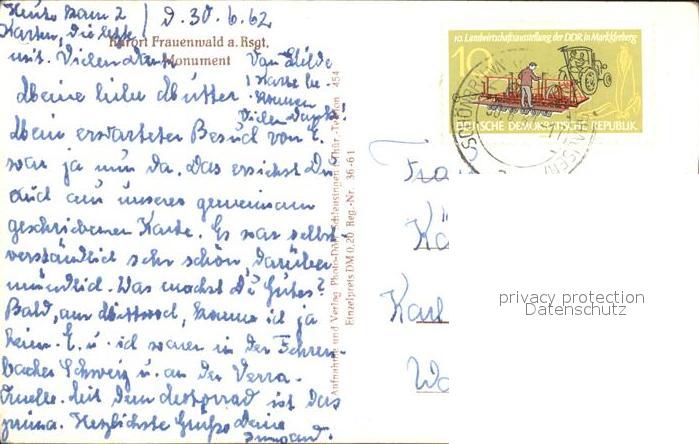 Heute kam 2 / d. 30.6.62
Karten, die letzte
mit. Vielen Dank
Kurort Frauenwald a. Rstg.
Monument
Von Hilde
1 Karte be-
kommen
Vielen Dank
Meine liebe Mutter.
Mein erwarteter Besuch von E.
war ja nun da. Das ersiehst Du
auch aus unserer gemeinsam
geschriebenen Karte. Es war selbst-
verständlich sehr schön, darüber
mündlich. Was machst Du Gutes?
Bald, am Mittwoch, komme ich ja
heim. E. u. ich waren in der Fehren-
bacher Schweiz u. an der Werra-
Quelle. Mit dem Motorrad ist das
prima. Herzlichste Grüße Deine
Irmgard.
Aufnahme und Verlag Photo-Dörr, Schleusingen/Thür. - Telefon 454
Einzelpreis DM 0,20 Reg.-Nr. 36-61
10. Landwirtschaftsausstellung der DDR in Markkleeberg
10
DEUTSCHE DEMOKRATISCHE REPUBLIK
Karl
privacy protection
Datenschutz